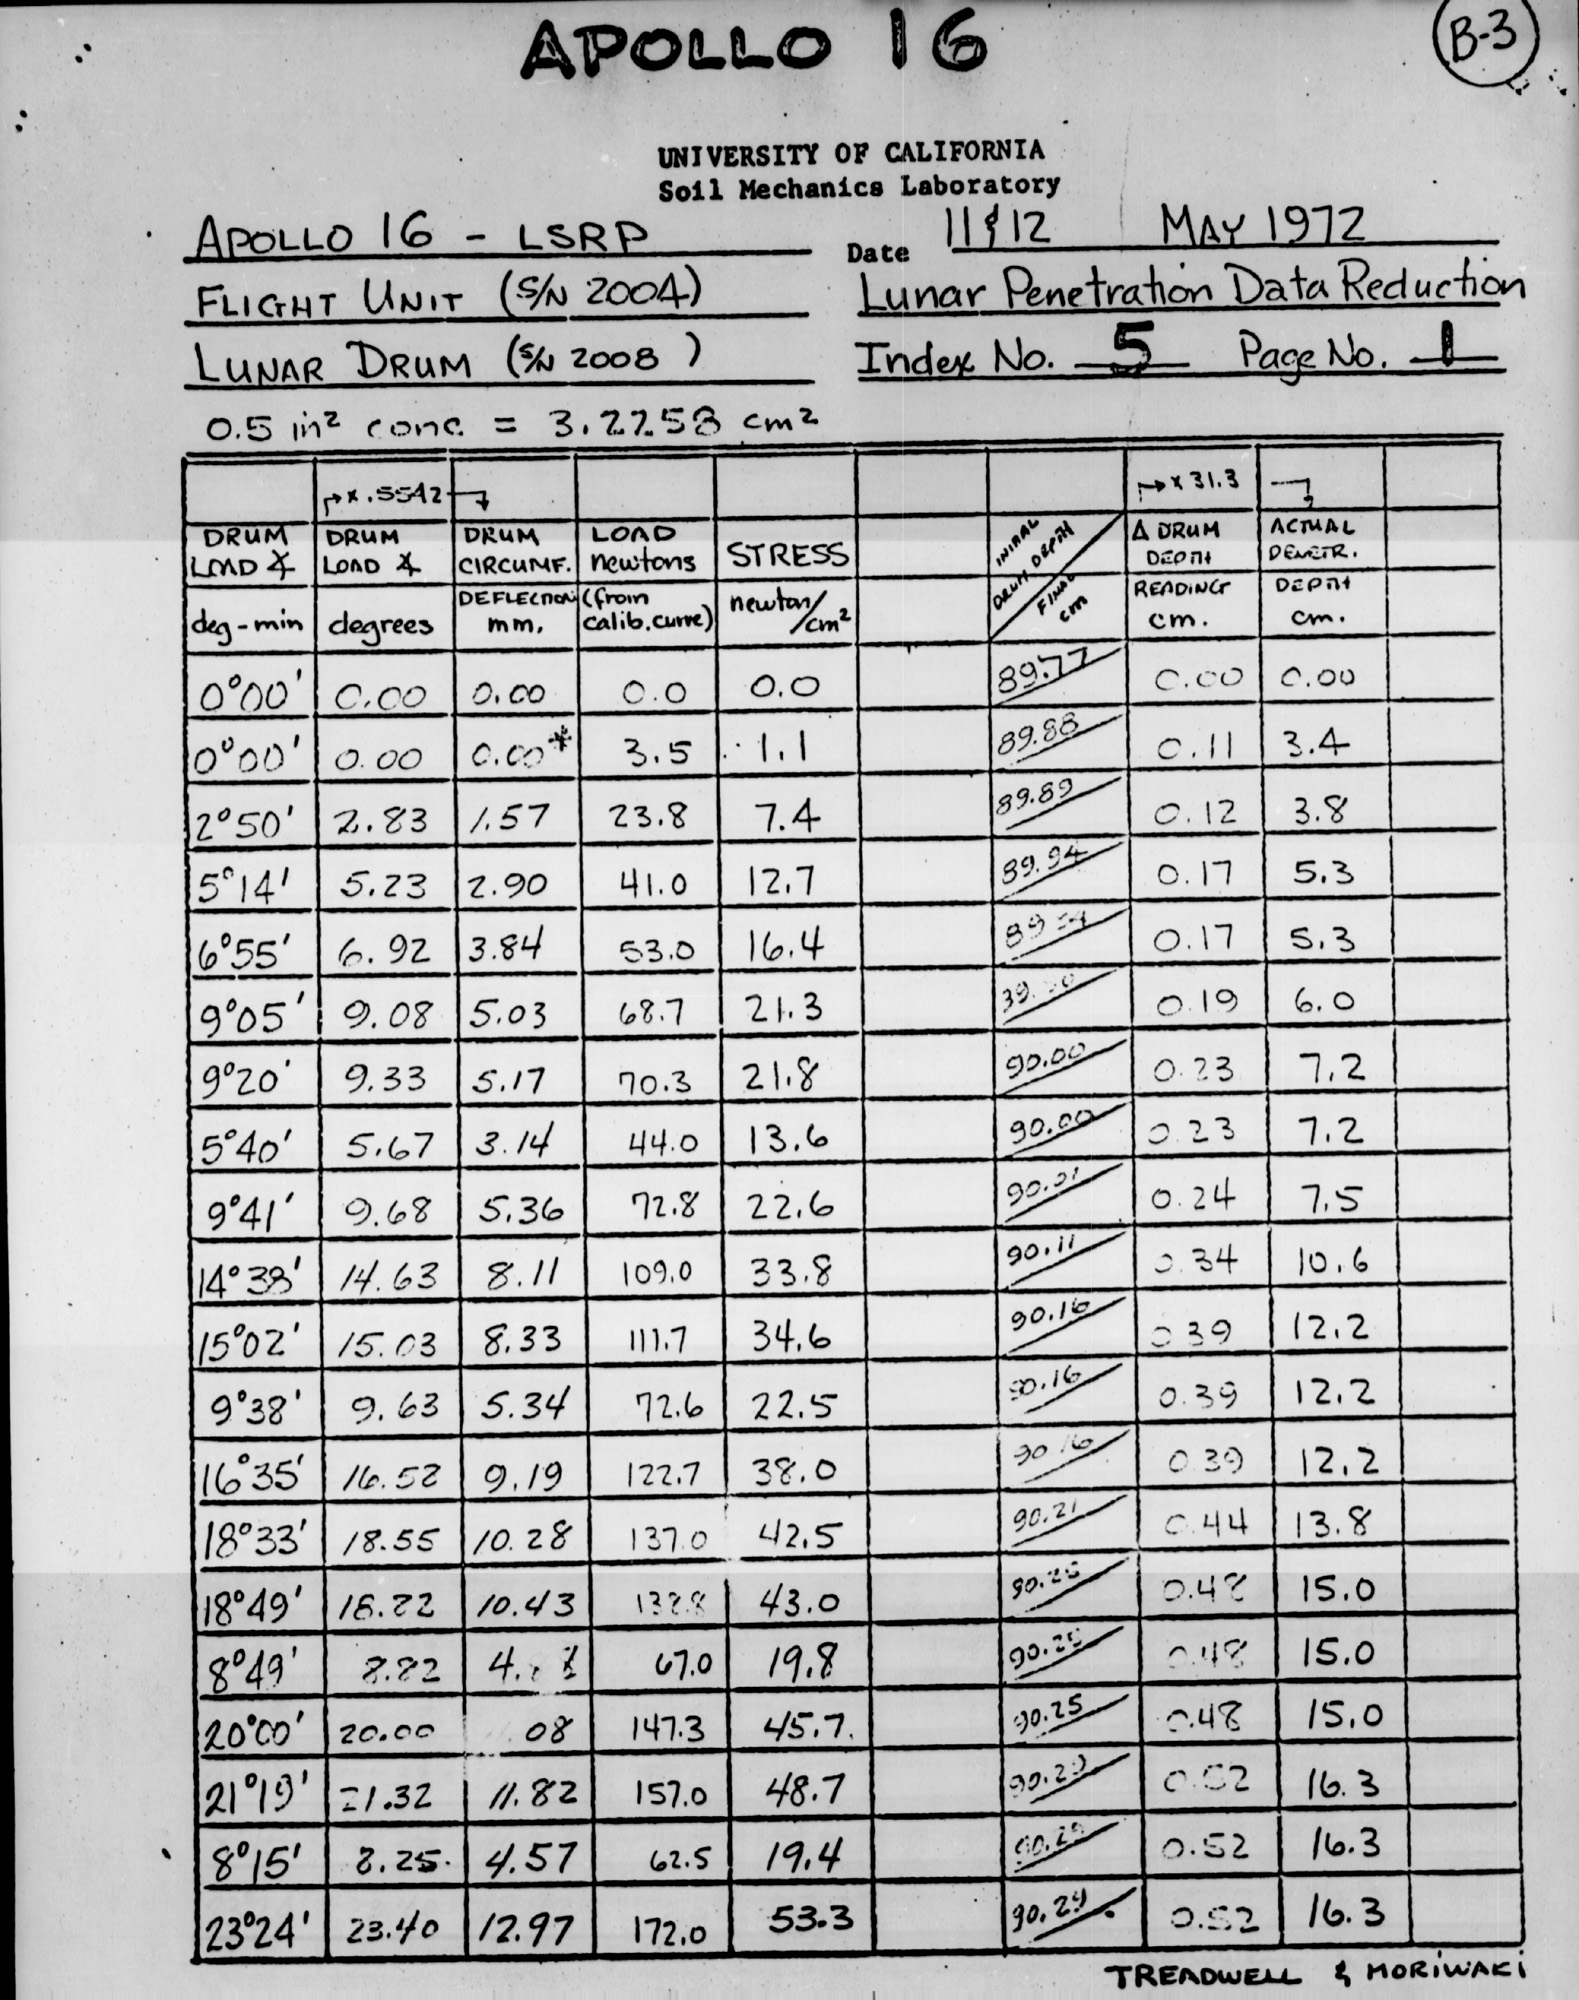 APOLLO 16
B-3
UNIVERSITY OF CALIFORNIA
Soil Mechanics Laboratory
APOLLO 16 - LSRP
Date 11 & 12 MAY 1972
FLIGHT UNIT (S/N 2004)
Lunar Penetration Data Reduction
LUNAR DRUM (S/N 2008)
Index No. 5 Page No. 1
0.5 in² cone = 3.2258 cm²
x .5542 x 31.3
DRUM LOAD ∡ deg-min
DRUM LOAD ∡ degrees
DRUM CIRCUMF. DEFLECTION mm.
LOAD newtons (from calib. curve)
STRESS newton/cm²
INITIAL DRUM DEPTH / FINAL cm
Δ DRUM DEPTH READING cm.
ACTUAL PENETR. DEPTH cm.
0°00' 0.00 0.00 0.0 0.0 89.77 0.00 0.00
0°00' 0.00 0.00* 3.5 1.1 89.88 0.11 3.4
2°50' 2.83 1.57 23.8 7.4 89.89 0.12 3.8
5°14' 5.23 2.90 41.0 12.7 89.94 0.17 5.3
6°55' 6.92 3.84 53.0 16.4 0.17 5.3
9°05' 9.08 5.03 68.7 21.3 0.19 6.0
9°20' 9.33 5.17 70.3 21.8 90.00 0.23 7.2
5°40' 5.67 3.14 44.0 13.6 90.00 0.23 7.2
9°41' 9.68 5.36 72.8 22.6 90.01 0.24 7.5
14°38' 14.63 8.11 109.0 33.8 90.11 0.34 10.6
15°02' 15.03 8.33 111.7 34.6 90.16 0.39 12.2
9°38' 9.63 5.34 72.6 22.5 90.16 0.39 12.2
16°35' 16.58 9.19 122.7 38.0 90.16 0.39 12.2
18°33' 18.55 10.28 137.0 42.5 90.21 0.44 13.8
18°49' 18.82 10.43 138.8 43.0 90.25 0.48 15.0
8°49' 8.82 67.0 19.8 90.25 0.48 15.0
20°00' 20.00 08 147.3 45.7 90.25 0.48 15.0
21°19' 21.32 11.82 157.0 48.7 90.29 0.52 16.3
8°15' 8.25 4.57 62.5 19.4 90.29 0.52 16.3
23°24' 23.40 12.97 172.0 53.3 90.29 0.52 16.3
TREADWELL & MORIWAKI